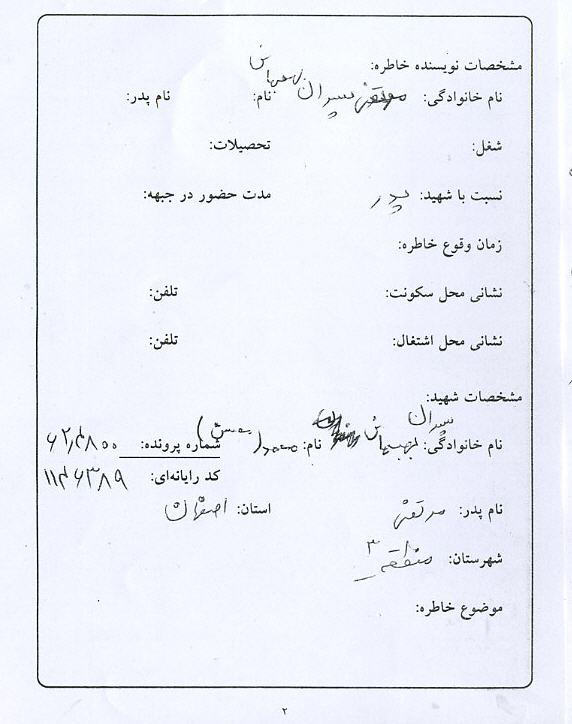 مشخصات نویسنده خاطره:
نام خانوادگی: پسران نام: نام پدر:
شغل: تحصیلات:
نسبت با شهید: پدر مدت حضور در جبهه:
زمان وقوع خاطره:
نشانی محل سکونت: تلفن:
نشانی محل اشتغال: تلفن:
مشخصات شهید:
نام خانوادگی: پسران نام: محمود شماره پرونده: ۶۲۰۴۸۰۰
کد رایانه‌ای: ۱۱۴۶۳۸۹
نام پدر: مرتضی استان: اصفهان
شهرستان: منطقه ۳
موضوع خاطره:
۲